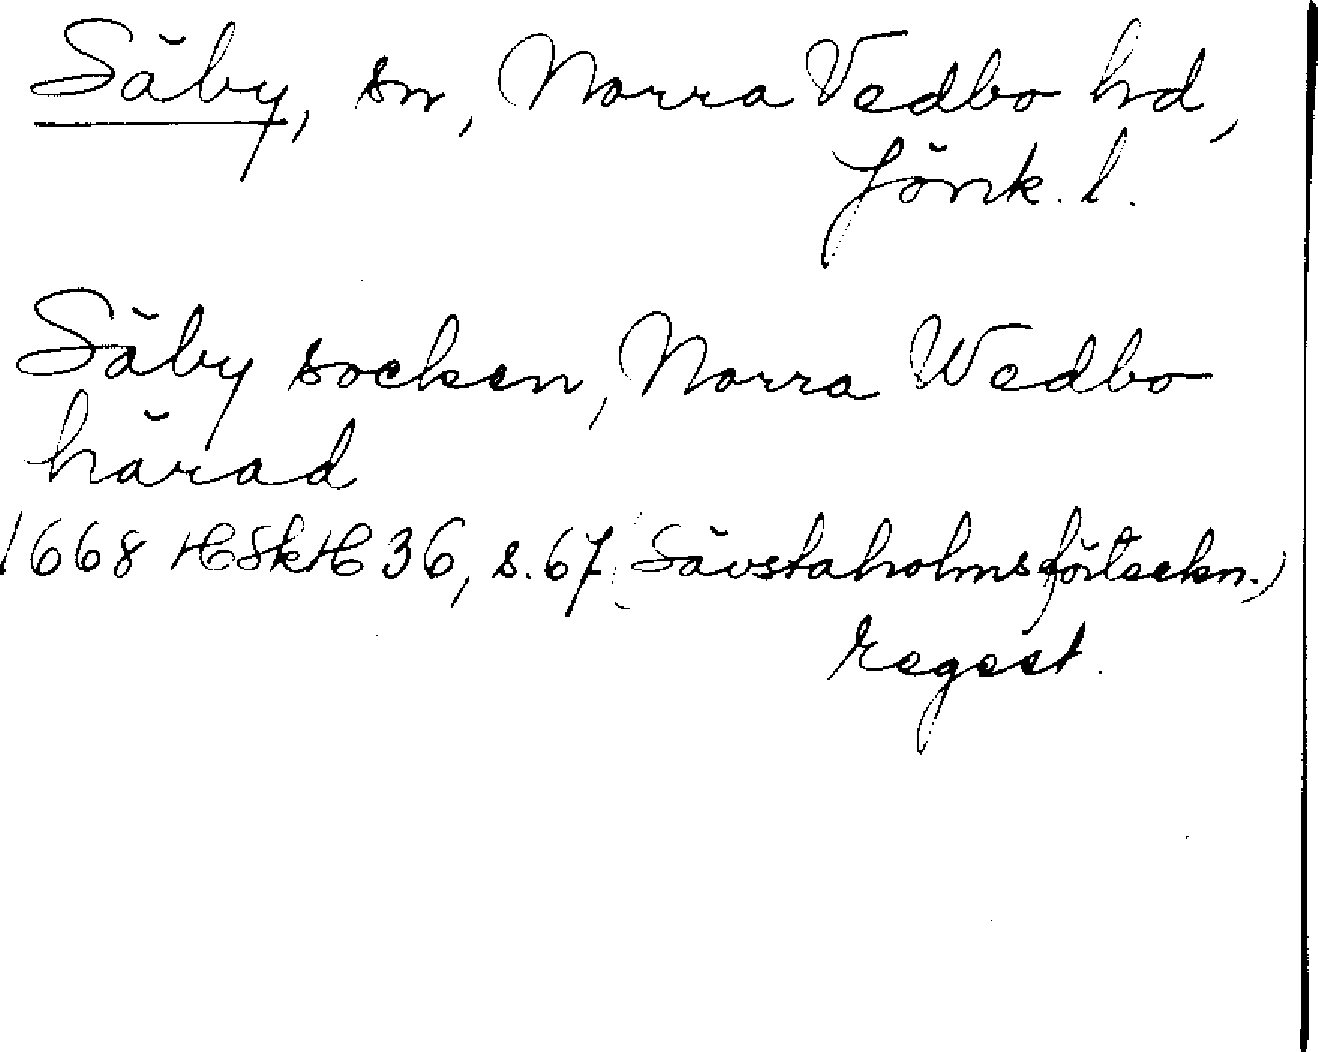 Säby, sn, Norra Vedbo hd,
Jönk. l.
Säby socken, Norra Wedbo
härad
1668 HSkH 36, s. 67 (Sävstaholmsförteckn.)
regest.